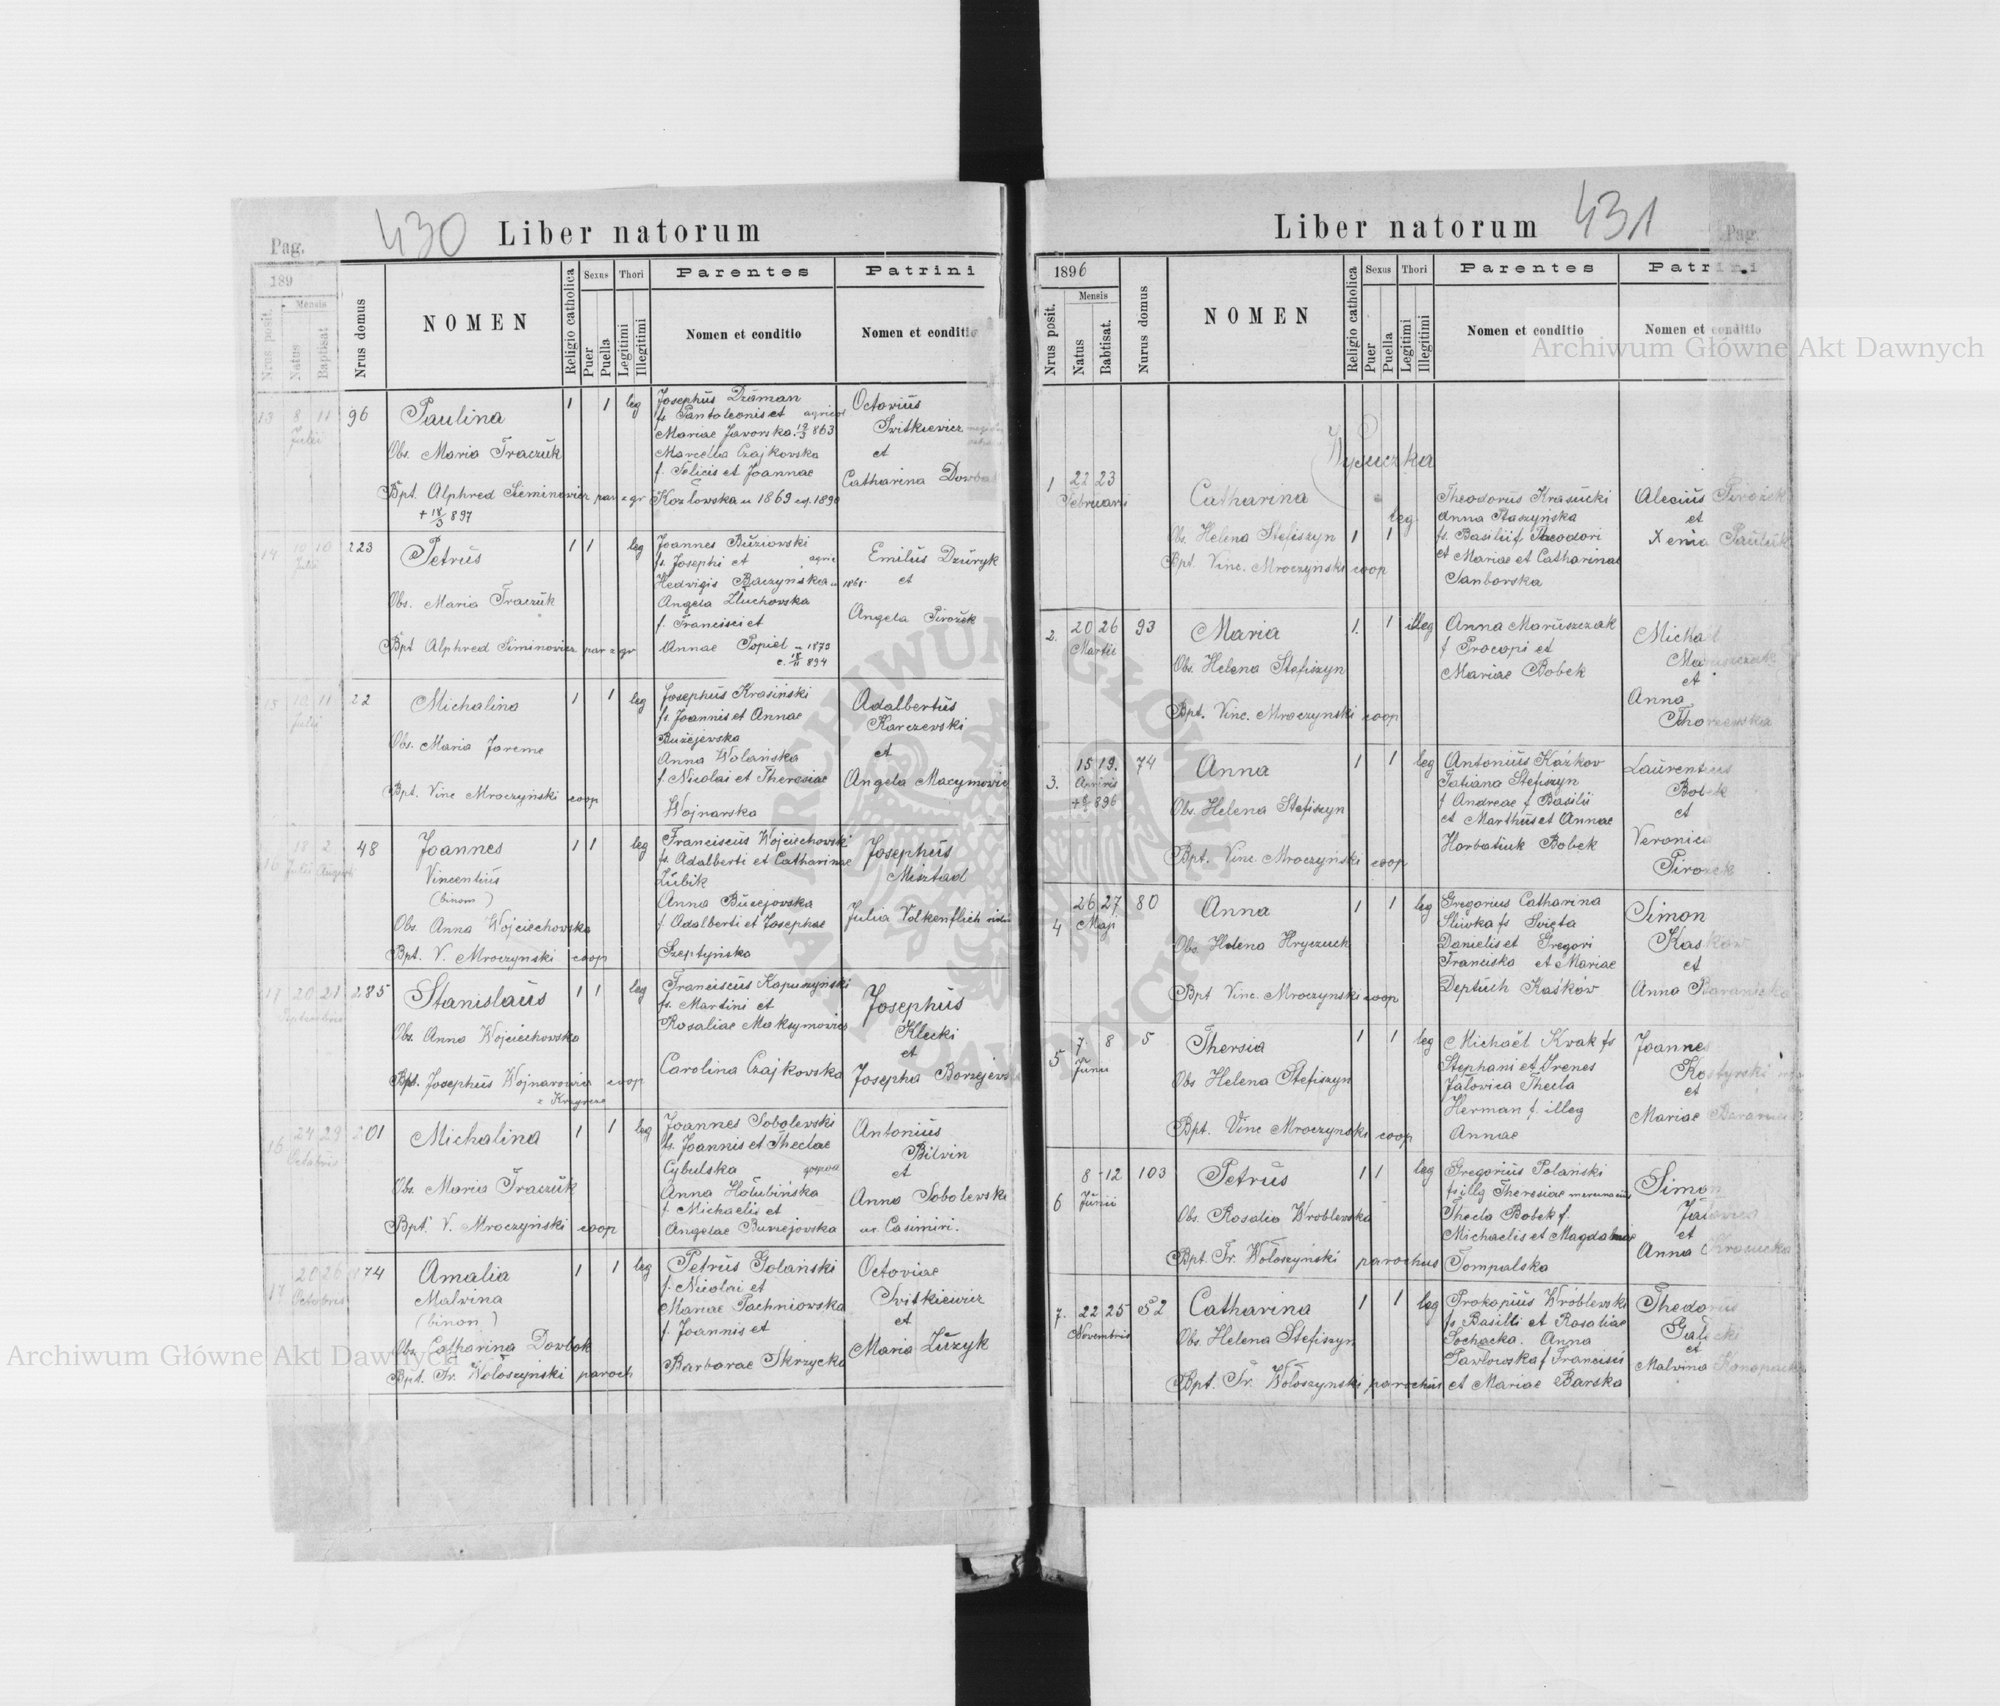 430
Liber natorum
Pag.
189
Mensis
Nrus posit.
Natus
Baptisat.
Nrus domus
NOMEN
Religio catholica
Sexus
Puer
Puella
Thori
Legitimi
Illegitimi
Parentes
Nomen et conditio
Patrini
Nomen et conditio
13 8 11 96 Paulina 1 1 leg
Julii
Obs. Maria Traczuk
Bpt. Alphred Siminowicz par z gr
+ 18/3 897
Josephus Duman
fs Pantoleonis et agricol
Mariae Jaworska 19/3 863
Marcella Czajkowska
f. Felicis et Joannae
Kozłowska n 1869 c. 1890
Octavius
Switkiewicz
et
Catharina
14 10 10 223 Petrus 1 1 leg
Julii
Obs. Maria Traczuk
Bpt Alphred Siminowicz par z gr
Joannes Buziowski
fs Josephi et agric
Hedvigis Baczynska n 1865
Angela Zluchowska
f. Francisci et
Annae Popiel n 1873
c. 18/11 894
Emilus Dzuryk
et
Angela Pirożek
15 10 11 22 Michalina 1 1 leg
Julii
Obs. Maria Jareme
Bpt. Vinc Mroczyński coop
Josephus Krasiński
fs. Joannis et Annae
Bużejewska
Anna Wolańska
f. Nicolai et Theresiae
Wojnarska
Adalbertus
Karczewski
et
Angela Macymowic
16 18 2 48 Joannes 1 1 leg
Julii Augusti
Vincentius
(binom)
Obs. Anna Wojciechowska
Bpt. V. Mroczynski coop
Franciscus Wojciechowski
fs. Adalberti et Catharinae
Zubik
Anna Buzejowska
f. Adalberti et Josephae
Szeptyńska
Josephus
Misztad
Julia Volkenflich
17 20 21 285 Stanislaus 1 1 leg
Septembris
Obs. Anna Wojciechowska
Bpt. Josephus Wojnarowicz coop
z Krzywcze
Franciscus Kapuszyński
fs. Martini et
Rosaliae Maksymowicz
Carolina Czajkowska
Josephus
Klecki
et
Josepha Borzejews
16 24 29 201 Michalina 1 1 leg
Octobris
Obs. Maria Traczuk
Bpt. V. Mroczyński coop
Joannes Sobolewski
fs. Joannis et Theclae
Cybulska
Anna Hołubińska
f. Michaelis et
Angelae Burzejowska
Antonius
Bilvin
et
Anna Sobolewska
ux. Casimiri.
17 20 26 174 Amalia 1 1 leg
Octobris
Malvina
(binon)
Obs. Catharina Dowbok
Bpt. Fr. Wołoszyński paroch
Petrus Golański
f. Nicolai et
Mariae Pachniowska
f. Joannis et
Barbarae Skrzycka
Octaviae
Switkiewicz
et
Maria Zuzyk
431
Liber natorum
Pag.
1896
Mensis
Nrus posit.
Natus
Babtisat.
Nurus domus
NOMEN
Religio catholica
Sexus
Puer
Puella
Thori
Legitimi
Illegitimi
Parentes
Nomen et conditio
Patrini
Nomen et conditio
Wysuczka
1 22 23 Catharina
Februarii leg
Obs. Helena Stefiszyn 1 1
Bpt. Vinc. Mroczyński coop
Theodorus Krasucki
Anna Staszyńska
fs. Basilii f Theodori
et Mariae et Catharinae
Sanborska
Alecius Pirożek
et
Xenia Pauluk
2. 20 26 93 Maria 1. 1 illeg
Martii
Obs. Helena Stefiszyn
Bpt. Vinc. Mroczynski coop
Anna Maruszczak
f Procopi et
Mariae Bobek
Michal
Maruszczak
et
Anna
Thorzewska
3. 15 19. 74 Anna 1 1 leg
Aprilis
Obs. Helena Stefiszyn
Bpt. Vinc. Mroczyński coop
Antonius Każkow
Tatiana Stefiszyn
f Andreae f Basilii
et Marthus et Annae
Horbatiuk Bobek
Laurentius
Bobek
et
Veronica
Pirozek
4 26 27 80 Anna 1 1 leg
Maji
Obs. Helena Hryczuck
Bpt Vinc. Mroczynski coop
Gregorius Catharina
Sliwka fs Swięta
Danielis et Gregori
Franciska et Mariae
Deptuch Kaśków
Simon
Kaskow
et
Anna Baranicka
5 7 8 5 Thersia 1 1 leg
Junii
Obs Helena Stefiszyn
Bpt. Vinc Mroczynski coop
Michaël Kwak fs
Stephani et Irenes
Jalovica Thecla
Herman f. illeg
Annae
Joannes
Kostyrski
et
Mariae
6 8 12 103 Petrus 1 1 leg
Junii
Obs. Rosalia Wroblewska
Bpt Fr. Wołoszyński parochus
Gregorius Polański
fs illg Theresiae
Thecla Bobek f.
Michaelis et Magdalenae
Tompalska
Simon
et
Anna Krasucka
7. 22 25 52 Catharina 1 1 leg
Novembris
Obs. Helena Stefiszyn
Bpt. Fr. Wołoszynski parochus
Prokopius Wróblewski
fs Basilli et Rosaliae
Sochacka. Anna
Pawłowska f Francisci
et Mariae Barska
Thedorus
Galecki
et
Malvina Konopacka
Archiwum Główne Akt Dawnych
Archiwum Główne Akt Dawnych
ARCHIWUM GŁÓWNE AKT DAWNYCH